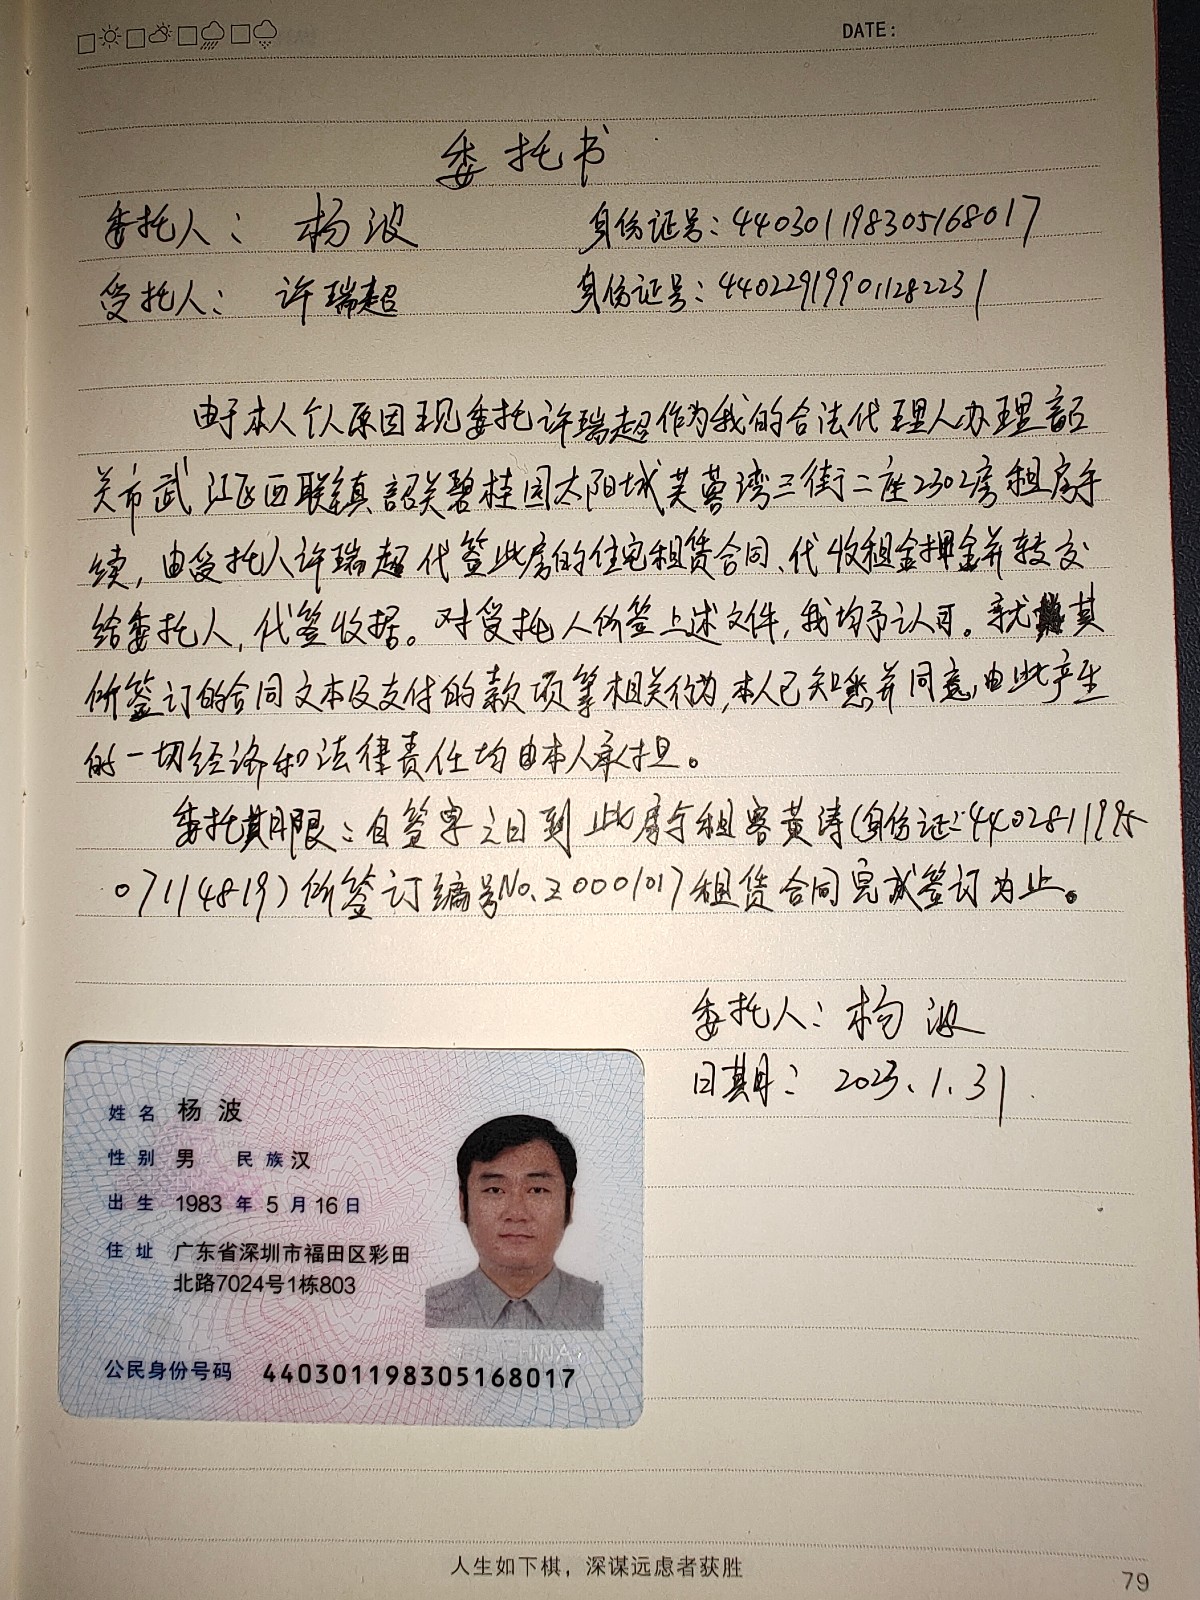 DATE:
委托书
委托人：杨波 身份证号：440301198305168017
受托人：许瑞超 身份证号：440229199011282231
由于本人个人原因现委托许瑞超作为我的合法代理人办理韶
关市武江区西联镇韶关碧桂园太阳城芙蓉湾三街二座2302房租房手
续，由受托人许瑞超代签此房的住宅租赁合同、代收租金押金并转交
给委托人，代签收据。对受托人所签上述文件，我均予认可。就其
所签订的合同文本及支付的款项等相关行为，本人已知悉并同意，由此产生
的一切经济和法律责任均由本人承担。
委托期限：自签字之日到此房与租客黄涛（身份证：4402811995
07114819）所签订编号No.20001017租赁合同完成签订为止。
委托人：杨波
日期：2023.1.31
姓名 杨波
性别 男 民族 汉
出生 1983年5月16日
住址 广东省深圳市福田区彩田
北路7024号1栋803
公民身份号码 440301198305168017
人生如下棋，深谋远虑者获胜
79